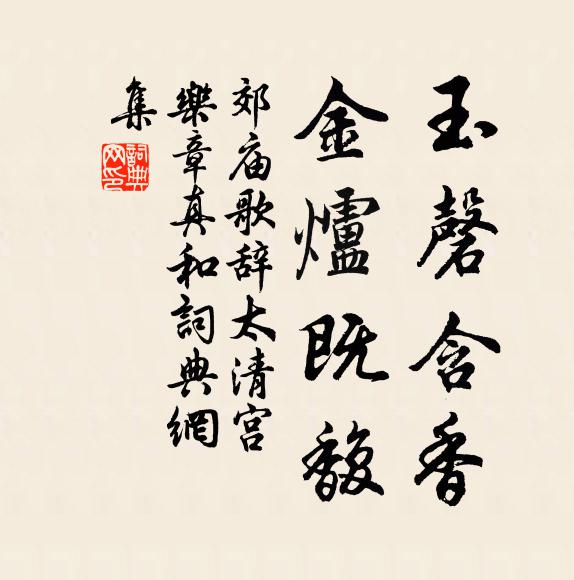 玉磬含香
金爐既馥
郊庙歌辞太清宫
樂章真和詞典網
集
詞典网印